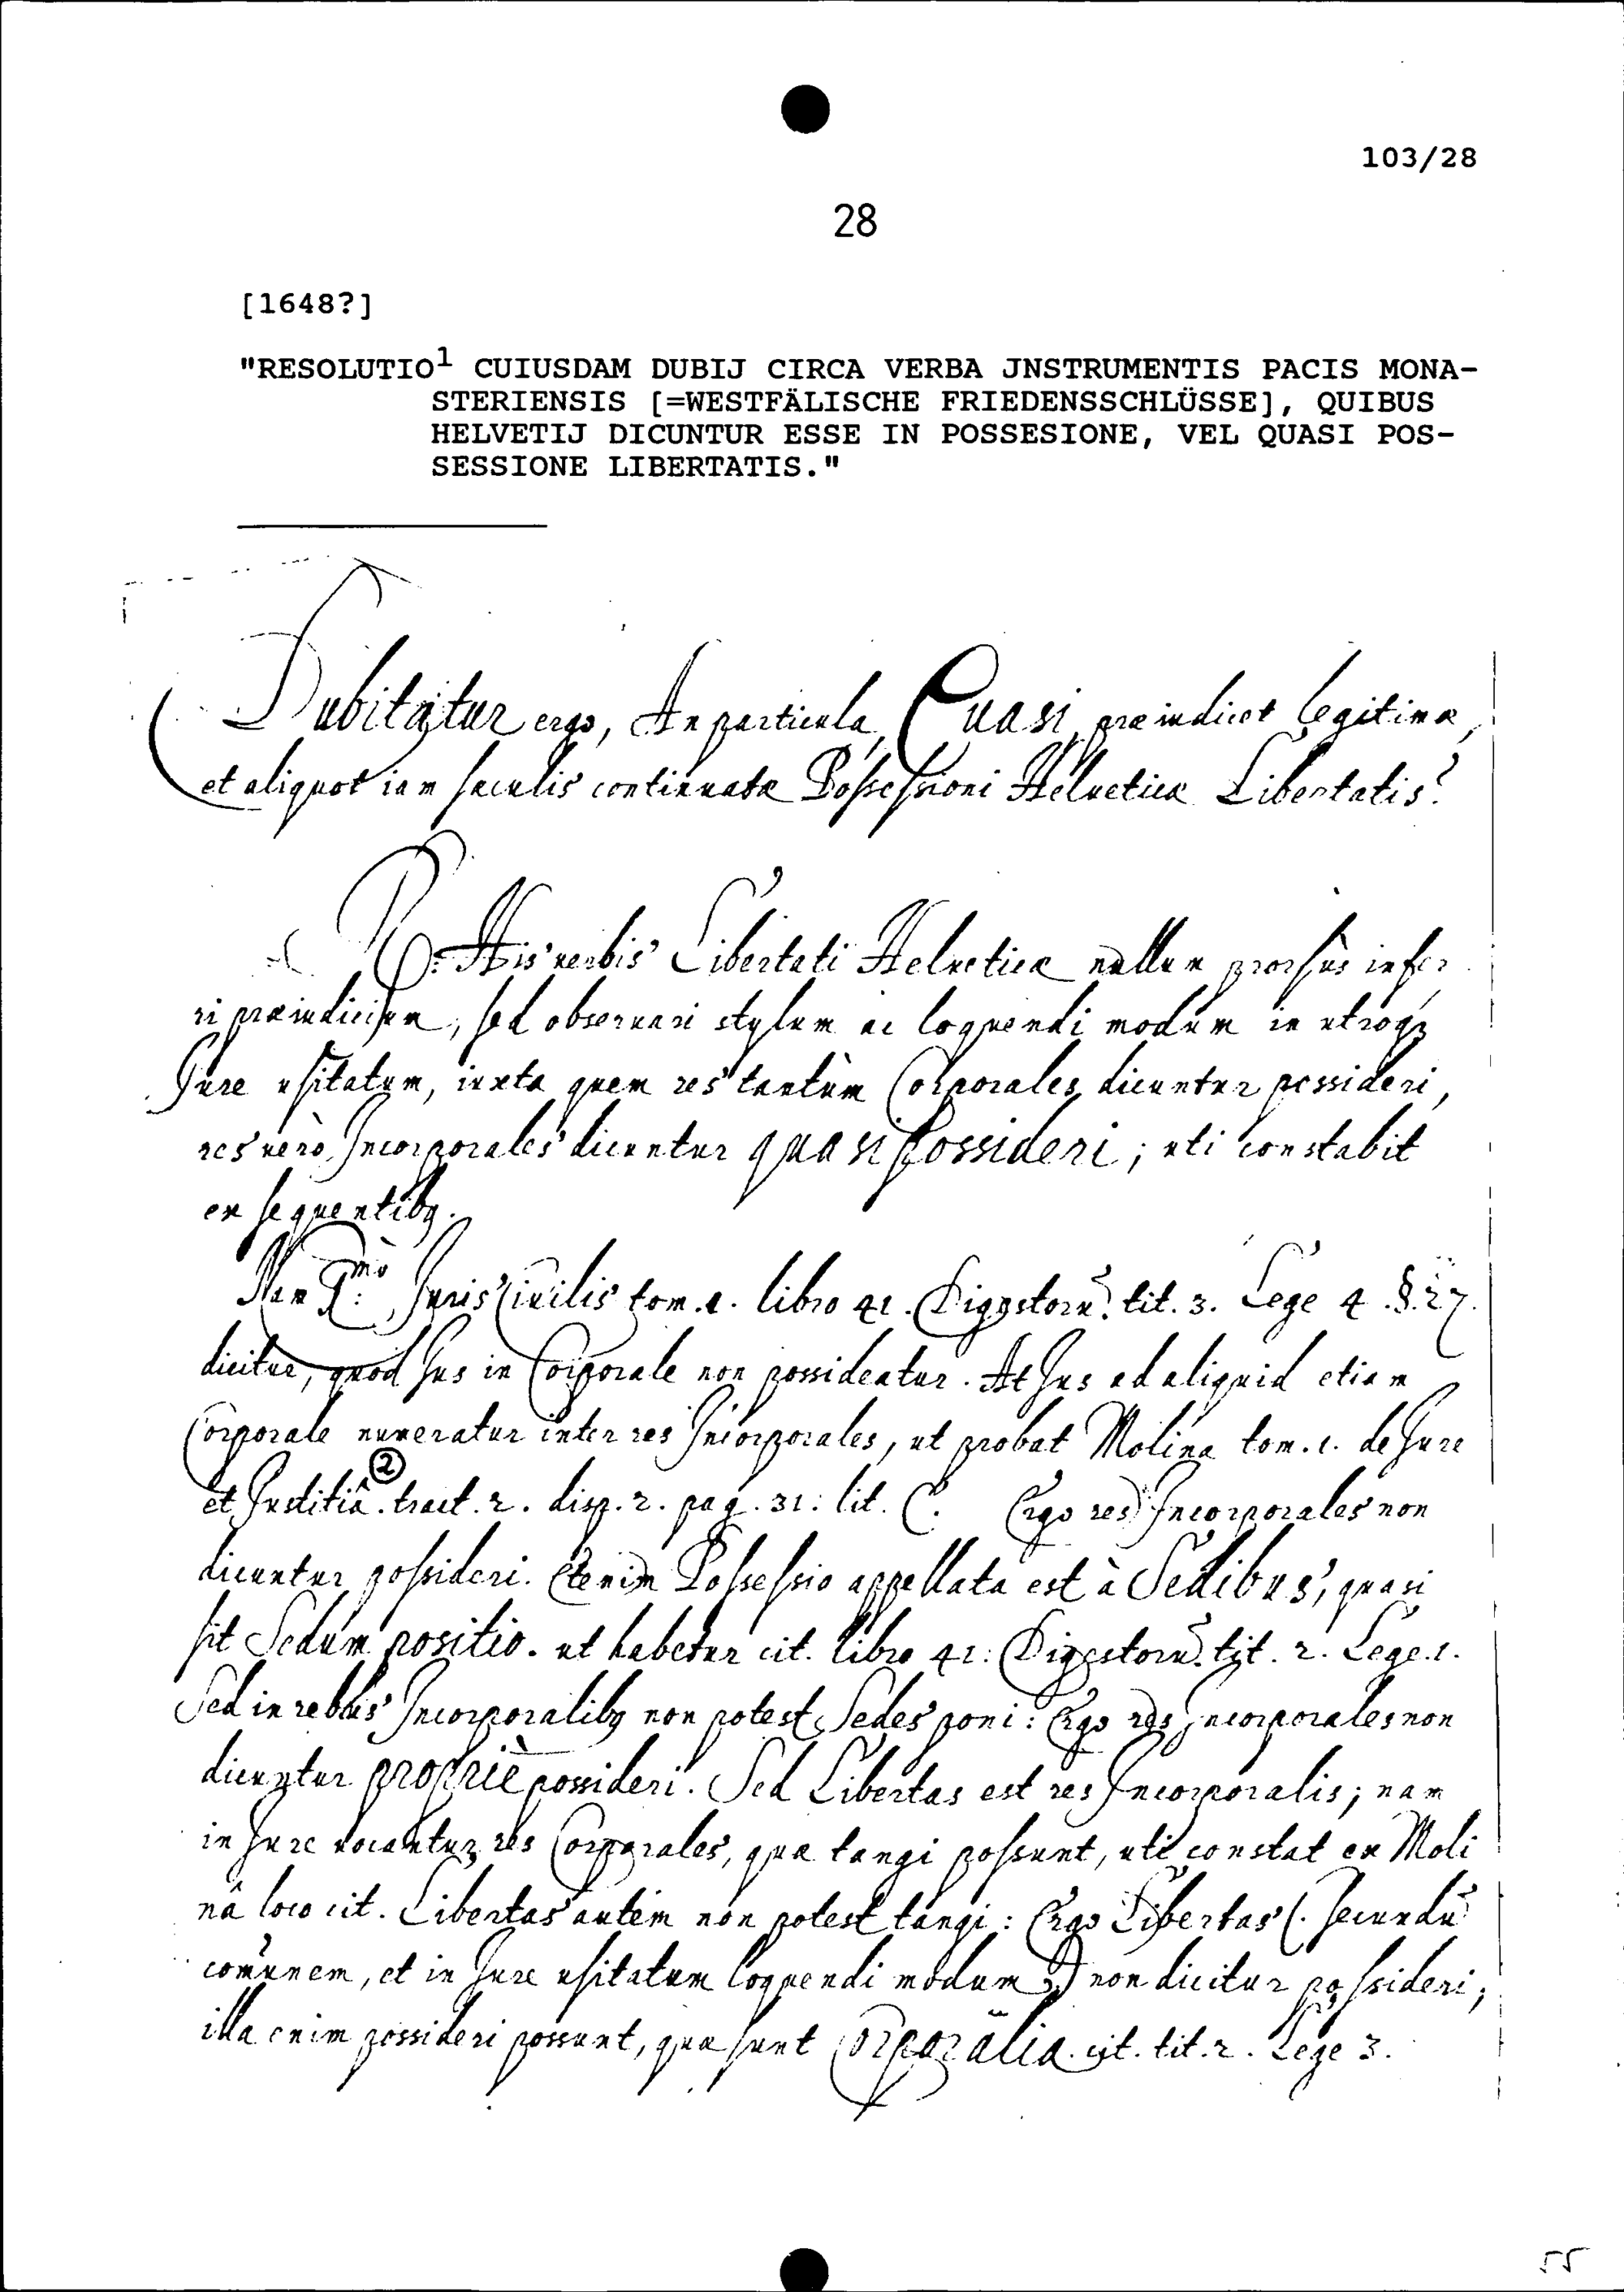 103/28
28
[1648?]
"RESOLUTIO¹ CUIUSDAM DUBIJ CIRCA VERBA JNSTRUMENTIS PACIS MONA-
STERIENSIS [=WESTFÄLISCHE FRIEDENSSCHLÜSSE], QUIBUS
HELVETIJ DICUNTUR ESSE IN POSSESIONE, VEL QUASI POS-
SESSIONE LIBERTATIS."
Dubitatur ergo, An particula, Quasi, præiudicet legitimæ,
et aliquot iam sæculis continuatæ Possessioni Helveticæ Libertatis?
R: His verbis Libertati Helveticæ nullum prorsùs infer
ri præiudicium, sed observari stylum ac loquendi modum in utroq;
Jure usitatum, iuxta quem res tantùm Corporales dicuntur possideri,
res verò Incorporales dicuntur quasi possideri; uti constabit
ex sequentibq.
Nam P.mo Juris Civilis tom. 1. libro 41. Digestorũ. tit. 3. Lege 4. §. 27.
dicitur, quod Jus in Corporale non possideatur. At Jus ad aliquid etiam
Corporale numeratur inter res Incorporales, ut probat Molina tom. 1. de Jure
et Justitiâ. ② tract. 2. disp. 2. pag. 31: lit. C. Ergo res Incorporales non
dicuntur possideri. Etenim Possessio appellata est à Sedibus, quasi
sit Sedum positio. ut habetur cit. libro 41: Digestorũ. tit. 2. Lege. 1.
Sed in rebus Incorporalibq non potest Sedes poni: Ergo res Incorporales non
dicuntur propriè possideri. Sed Libertas est res Incorporalis; nam
in Jure vocantur res Corporales, quæ tangi possunt, uti constat ex Moli
nâ loco cit. Libertas autem non potest tangi: Ergo Libertas (. secundũ
com̃unem, et in Jure usitatum loquendi modum .) non dicitur possideri;
illa enim possideri possunt, quæ sunt Corporalia. cit. tit. 2. Lege 3.
55